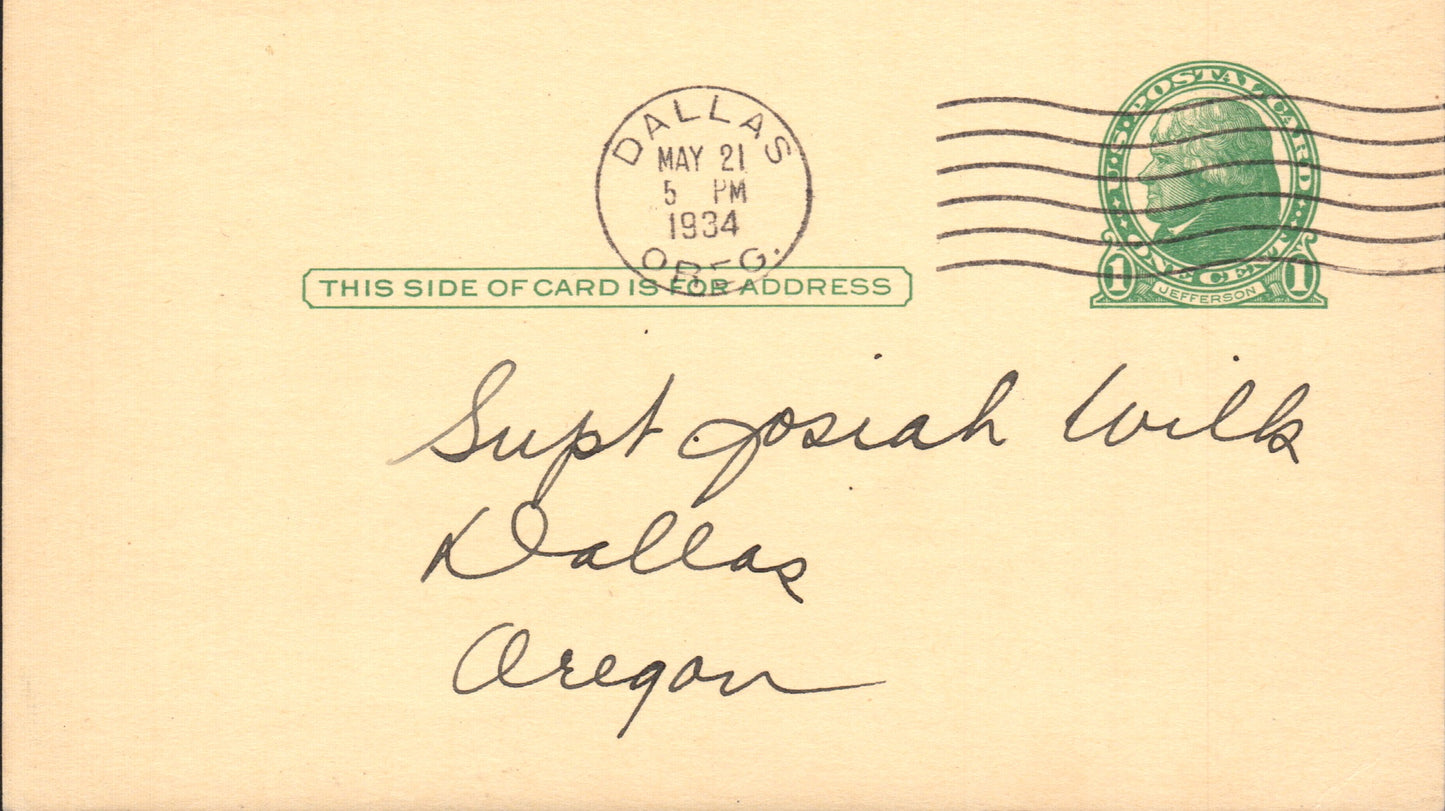 DALLAS
MAY 21
5 PM
1934
OREG.
U.S. POSTAL CARD
ONE CENT
1 JEFFERSON 1
THIS SIDE OF CARD IS FOR ADDRESS
Supt Josiah Wills
Dallas
Oregon